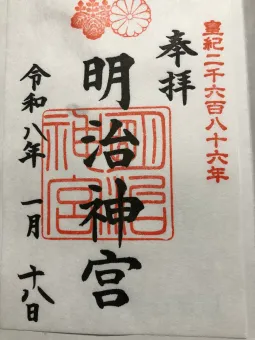 皇紀二千六百八十六年
奉拝
明治神宮
明治神宮
令和八年 一月 十八日